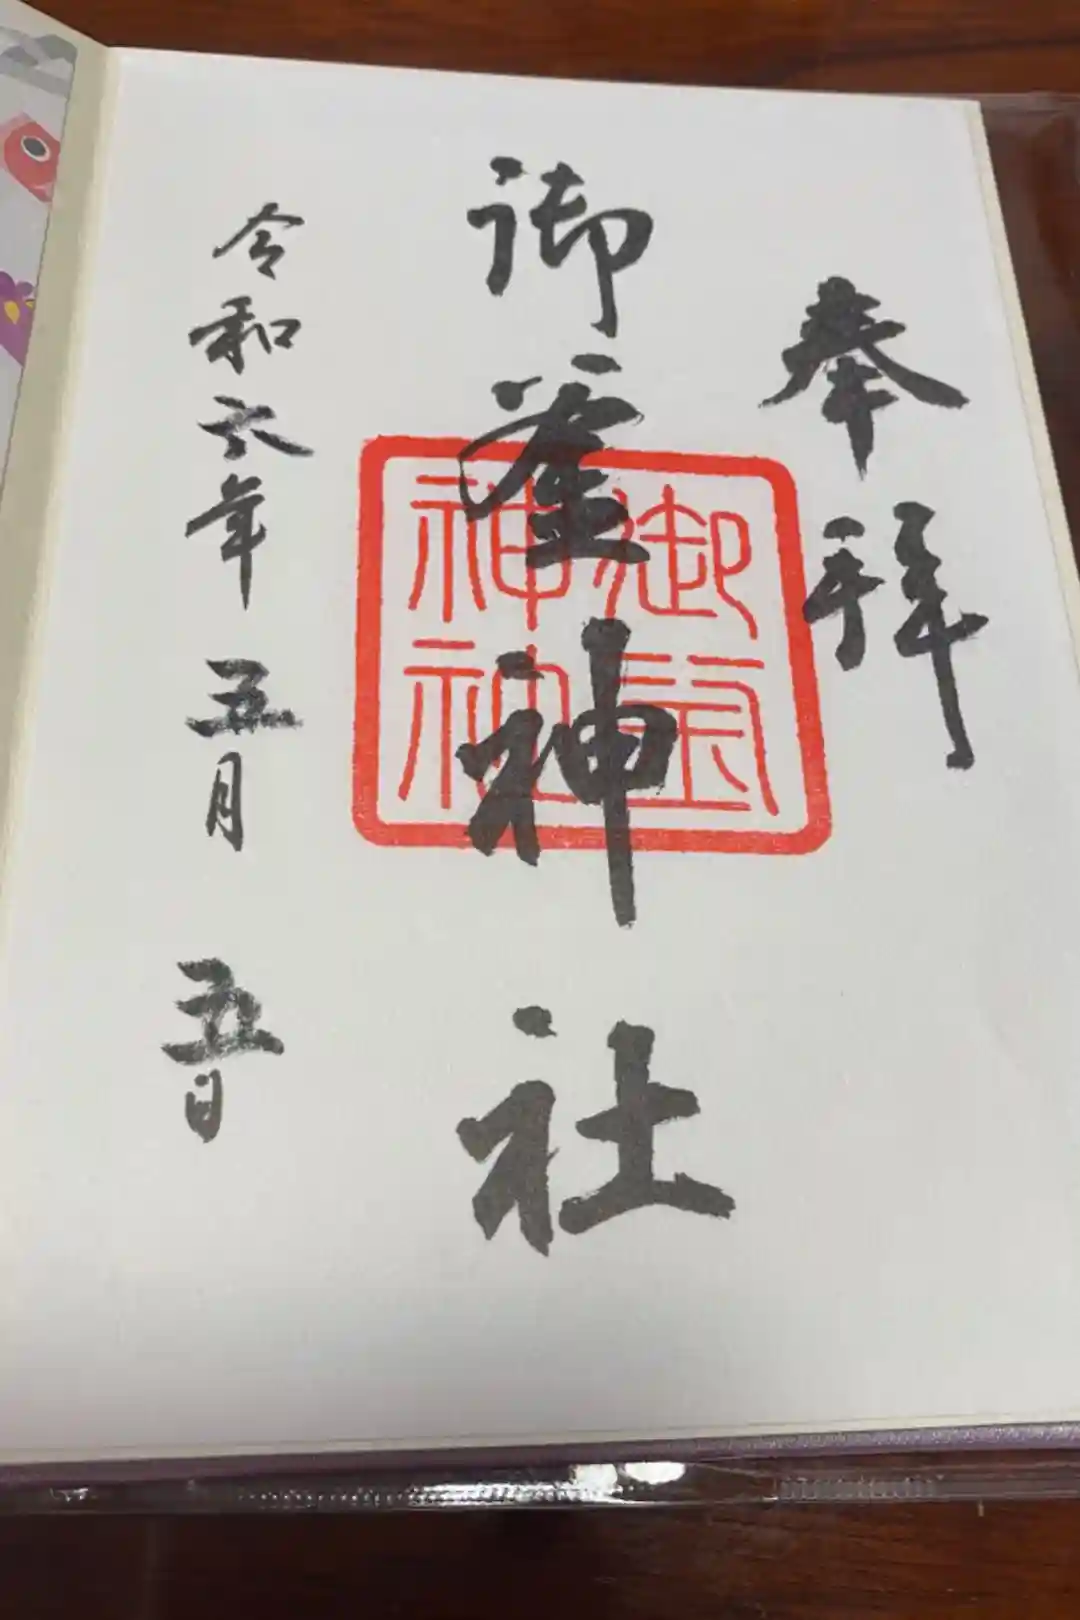 奉拝
御釜神社
御釜神社
令和六年五月五日